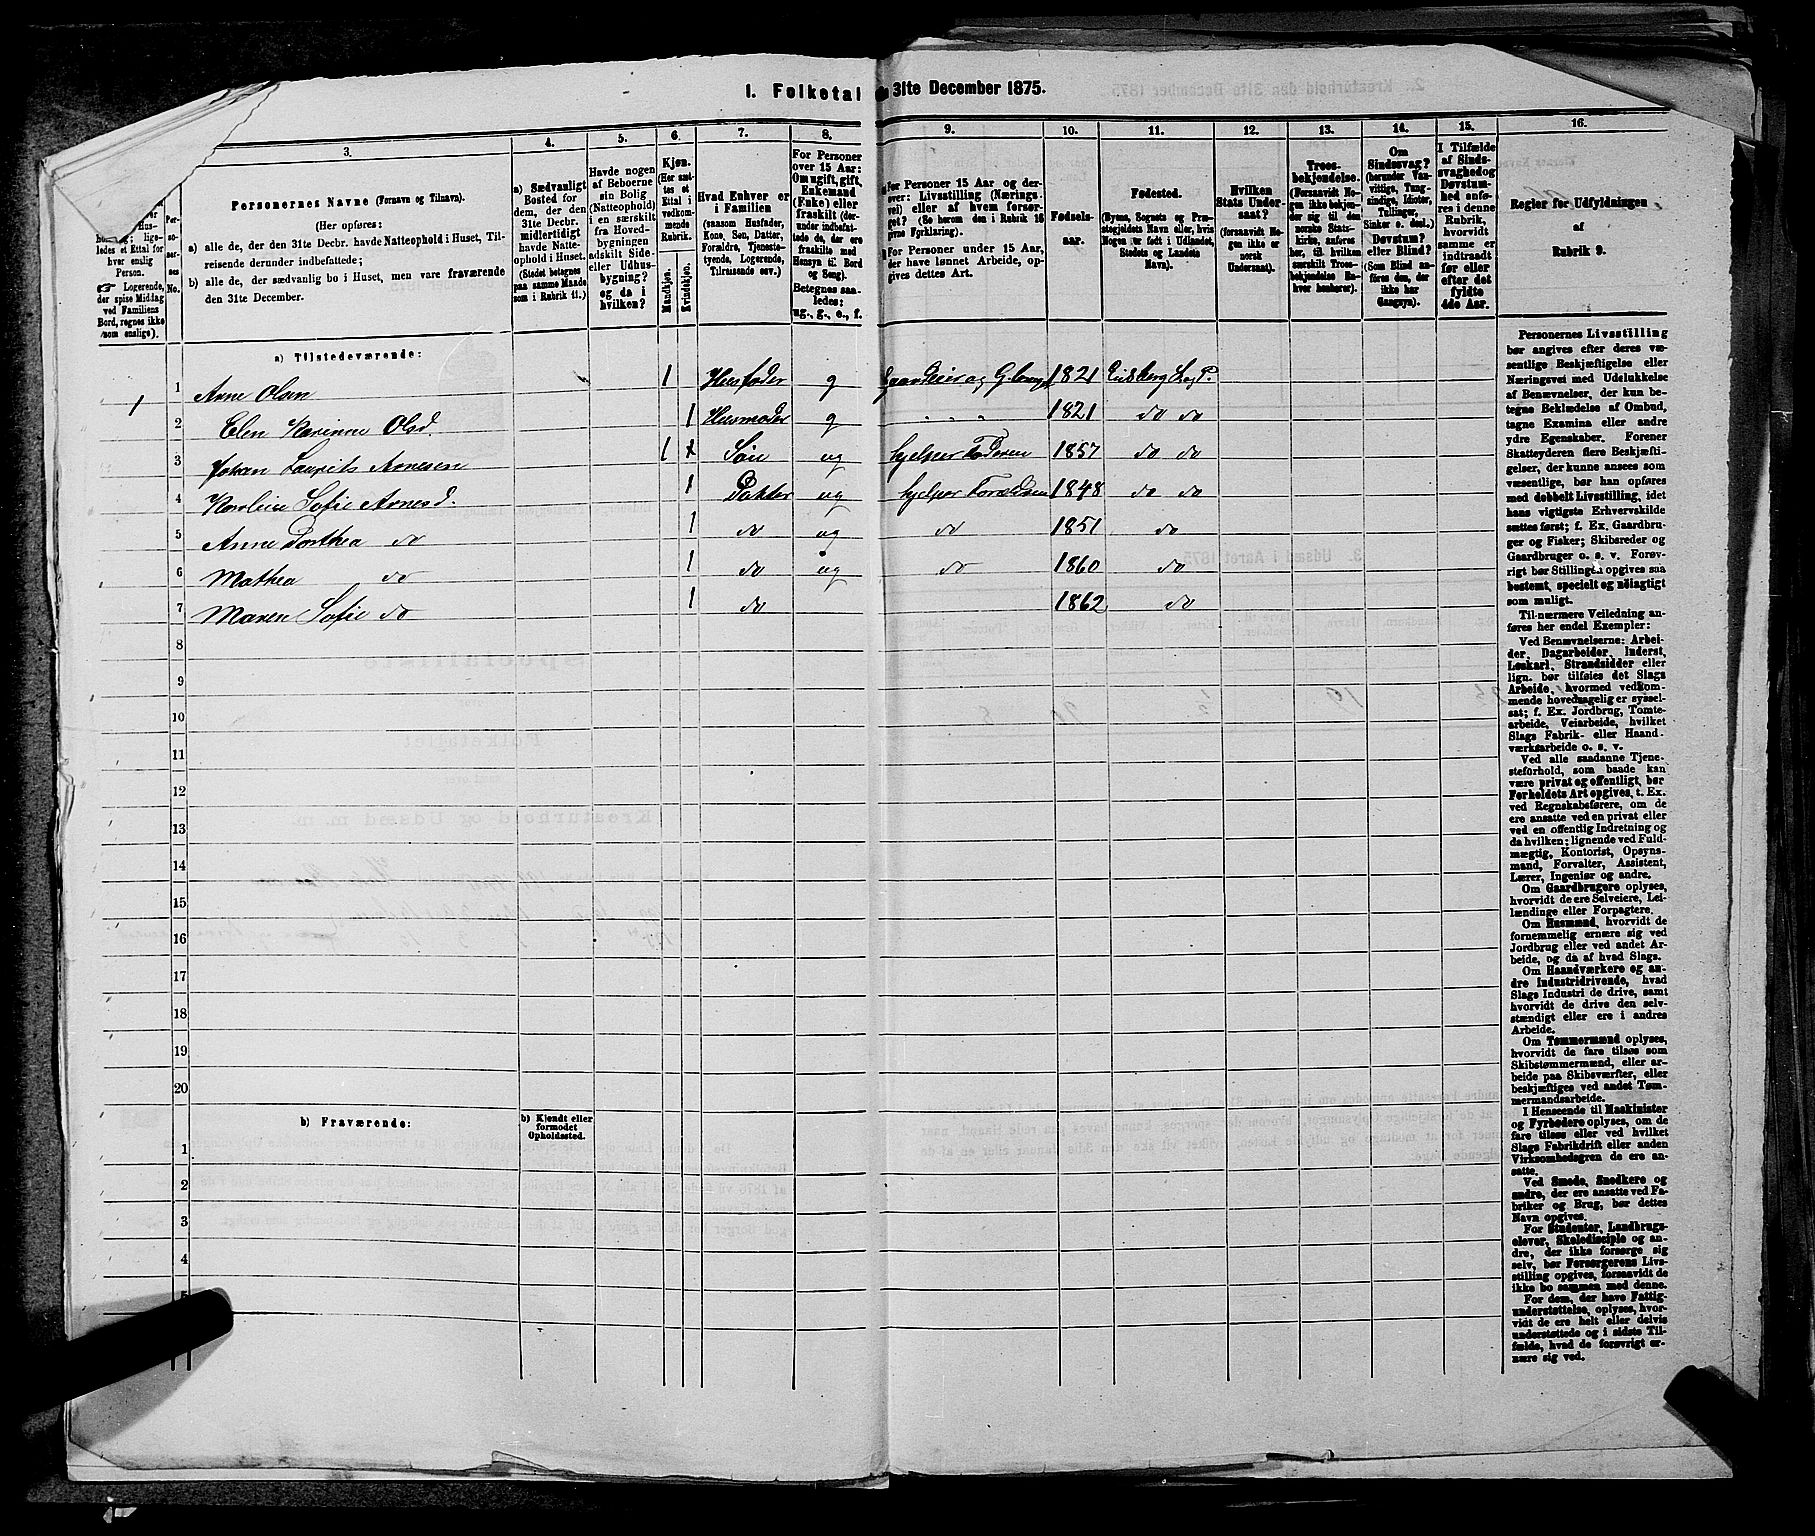 1. Folketal
31te December 1875.
3.
4.
5.
6.
7.
8.
9.
10.
11.
12.
13.
14.
15.
16.
Personernes Navne (Fornavn og Tilnavn).
(Her opføres:
a) alle de, der den 31te Decbr. havde Natteophold i Huset, Til-
reisende derunder indbefattede;
b) alle de, der sædvanlig bo i Huset, men vare fraværende
den 31te December.
lige-
ledes et Ettal for
hver enslig
Person.
☞ Logerende,
der spise Middag
ved Familiens
Bord, regnes ikke
som enslige).
Per-
so-
ner-
nes
No.
a) Sædvanligt
Bosted for
dem, der den
31te Decbr.
midlertidigt
havde Natte-
ophold i Huset.
(Stedet betegnes
paa samme Maade
som i Rubrik 11.)
Havde nogen
af Beboerne
sin Bolig
(Natteophold)
i en særskilt
fra Hoved-
bygningen
adskilt Side-
eller Udhus-
bygning?
og da i
hvilken?
Kjøn.
(Her sæt-
tes et
Ettal i
vedkom-
mende
Rubrik.
Mandkjøn.
Kvindekjøn.
Hvad Enhver er
i Familien
(saasom Husfader,
Kone, Søn, Datter,
Forældre, Tjeneste-
tyende, Logerende,
Tilreisende osv.)
For Personer
over 15 Aar:
Om ugift, gift,
Enkemand
(Enke) eller
fraskilt (der-
under indbefat-
tede de, der ere
fraskilte med
Hensyn til Bord
og Seng).
Betegnes saa-
ledes:
ug., g., e., f.
For Personer 15 Aar og der-
over: Livsstilling (Nærings-
vei) eller af hvem forsør-
get? (Se herom den i Rubrik 16
givne Forklaring).
For Personer under 15 Aar,
der have lønnet Arbeide, op-
gives dettes Art.
Fødsels-
aar.
Fødested.
(Byens, Sognets og Præ-
stegjeldets Navn eller, hvis
Nogen er født i Udlandet,
Stedets og Landets
Navn).
Hvilken
Stats Under-
saat?
(forsaavidt No-
gen ikke er
norsk
Undersaat).
Troes-
bekjendelse.
(Forsaavidt No-
gen ikke bekjen-
der sig til den
norske Stats-
kirke, anføres
her, til hvilken
særskilt Troes-
bekjendelse En-
hver henhører).
Om
Sindssvag?
(herunder Van-
vittige, Tung-
sindige, Idioter,
Tullinger,
Sinker o. desl.)
Døvstum?
eller Blind?
(Som Blind an-
føres den, der
ikke har
Gangsyn).
I Tilfælde
af Sinds-
svaghed og
Døvstum-
hed anfø-
res i denne
Rubrik,
hvorvidt
samme er
indtraadt
før eller
efter det
fyldte
4de Aar.
Regler for Udfyldningen
af
Rubrik 9.
a) Tilstedeværende:
1 1 Arne Olsen 1 Husfader g Gaardeier og 1821 Eidsberg S. og P.
2 Elen Karinne Olsd. 1 Husmoder g " " " 1821 do do
3 Johan Laurits Arnesen 1 Søn ug hjelper Faderen 1857 do do
4 Karoline Sofie Arnesd. 1 Datter ug hjelper Forældrene 1848 do do
5 Anne Dorthea do 1 do ug do 1851 do
6 Mathea do 1 do ug do 1860 do
7 Maren Sofie do 1 do 1862 do
8
9
10
11
12
13
14
15
16
17
18
19
20
b) Fraværende:
b) Kjendt eller
formodet
Opholdssted.
1
2
3
4
5
Personernes Livsstilling
bør angives efter deres væ-
sentlige Beskjæftigelse eller
Næringsvei med Udelukkelse
af Benævnelser, der kun be-
tegne Beklædelse af Ombud,
tagne Examina eller andre
ydre Egenskaber. Forener
Skatteyderen flere Beskjæfti-
gelser, der kunne ansees som
væsentlige, bør han opføres
med dobbelt Livsstilling, idet
hans vigtigste Erhvervskilde
sættes først; f. Ex. Gaardbru-
ger og Fisker; Skibsreder og
Gaardbruger o. s. v. Forøv-
rigt bør Stillingen opgives saa
bestemt, specielt og nøiagtigt
som muligt.
Til nærmere Veiledning an-
føres her endel Exempler:
Ved Benævnelserne: Arbei-
der, Dagarbeider, Inderst,
Løskarl, Strandsidder eller
lign. bør tilføies det Slags
Arbeide, hvormed vedkom-
mende hovedsagelig er syssel-
sat; f. Ex. Jordbrug, Tomte-
arbeide, Veiarbeide, hvilket
Slags Fabrik- eller Haand-
værksarbeide o. s. v.
Ved alle saadanne Tjene-
steforhold, som baade kan
være privat og offentligt, bør
Forholdets Art opgives, t. Ex.
ved Regnskabsførere, om de
ere ansatte ved en privat eller
ved en offentlig Indretning og
da hvilken; lignende ved Fuld-
mægtig, Kontorist, Opsyns-
mand, Forvalter, Assistent,
Lærer, Ingeniør og andre.
Om Gaardbrugere oplyses,
hvorvidt de ere Selveiere, Lei-
lændinge eller Forpagtere.
Om Husmænd, hvorvidt de
fornemmelig ernære sig ved
Jordbrug eller ved andet Ar-
beide, og da af hvad Slags.
Om Haandværkere og an-
dre Industridrivende, hvad
Slags Industri de drive, samt
hvorvidt de drive den selv-
stændigt eller ere i andres
Arbeide.
Om Tømmermænd oplyses,
hvorvidt de fare tilsøs som
Skibstømmermænd, eller ar-
beide paa Skibsværfter, eller
beskjæftiges ved andet Tøm-
mermandsarbeide.
I Henseende til Maskinister
og Fyrbødere oplyses, om de
fare tilsøs eller ved hvilket
Slags Fabrikdrift eller anden
Virksomhedsgren de ere an-
satte.
Ved Smede, Snedkere og
andre, der ere ansatte ved Fa-
briker og Brug, bør dettes
Navn opgives.
For Studenter, Landbrugs-
elever, Skoledisciple og an-
dre, der ikke forsørge sig
selv, bør Forsørgerens Livs-
stilling opgives, forsaavidt de
ikke bo sammen med denne.
For dem, der have Fattig-
understøttelse, oplyses, hvor-
vidt de ere helt eller delvis
understøttede og i sidste Til-
fælde, hvad de forøvrigt er-
nære sig ved.